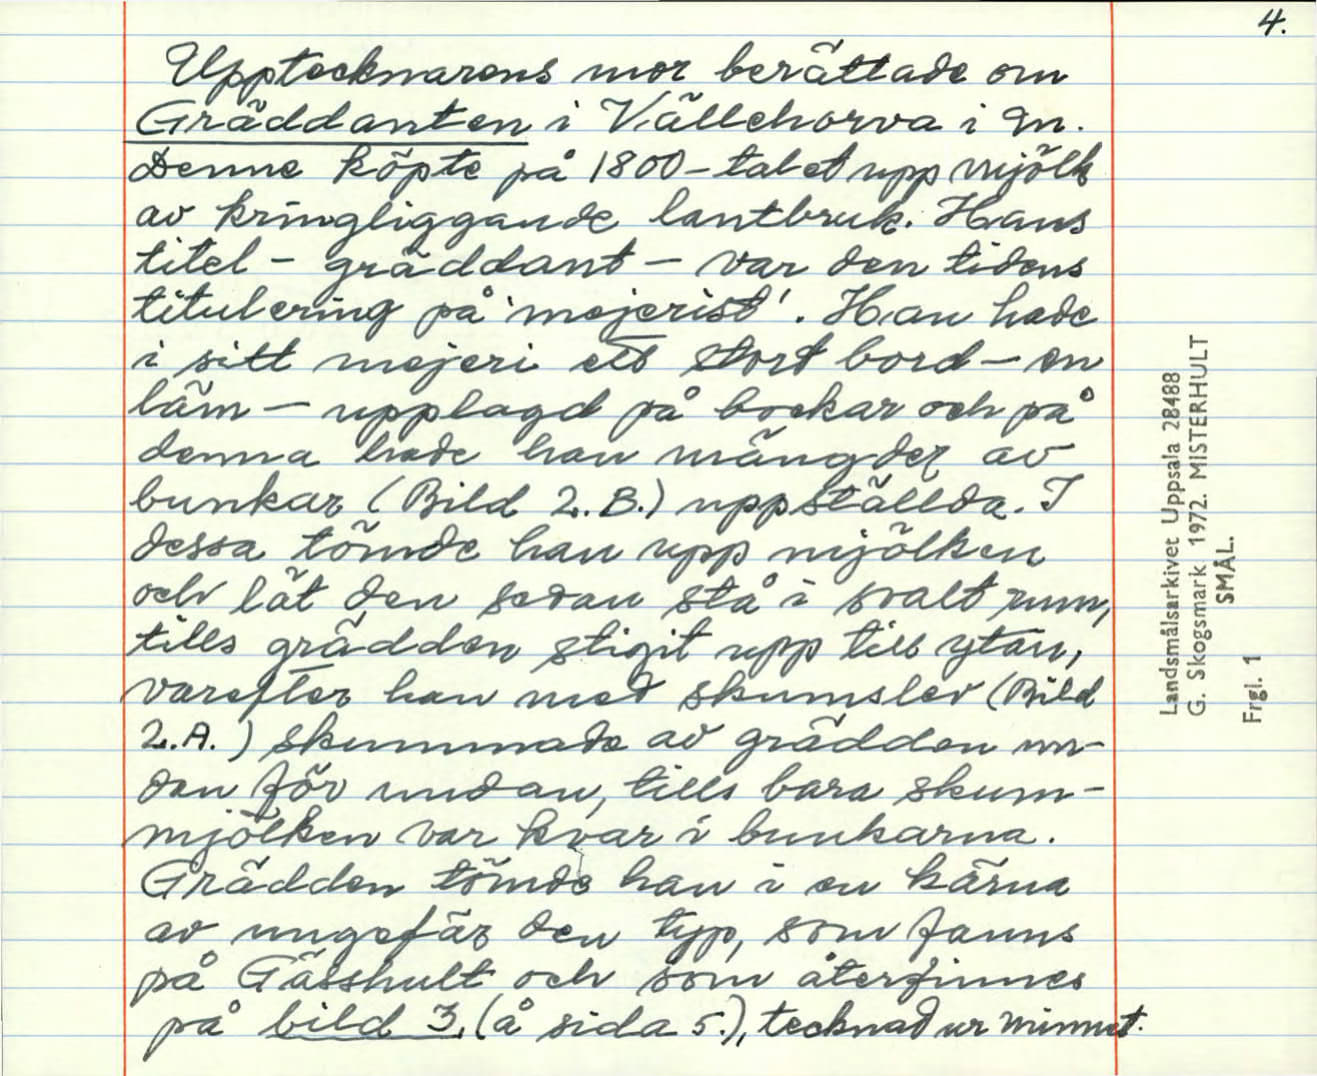 4.
Upptecknarens mor berättade om
Gräddanten i Källehorva i M.
Denne köpte på 1800-talet upp mjölk
av kringliggande lantbruk. Hans
titel - gräddant - var den tidens
titulering på 'mejerist'. Han hade
i sitt mejeri ett stort bord - en
läm - upplagd på bockar och på
denna hade han mängder av
bunkar (Bild 2.B.) uppställda. I
dessa tömde han upp mjölken
och lät den sedan stå i svalt rum,
tills grädden stigit upp till ytan,
varefter han med skumslev (Bild
2.A.) skummade av grädden un-
dan för undan, tills bara skum-
mjölken var kvar i bunkarna.
Grädden tömde han i en kärna
av ungefär den typ, som fanns
på Gässhult och som återfinnes
på bild 3, (å sida 5.), tecknad ur minnet.
Landsmålsarkivet Uppsala 28488
G. Skogsmark 1972. MISTERHULT
SMÅL.
Frgl. 1